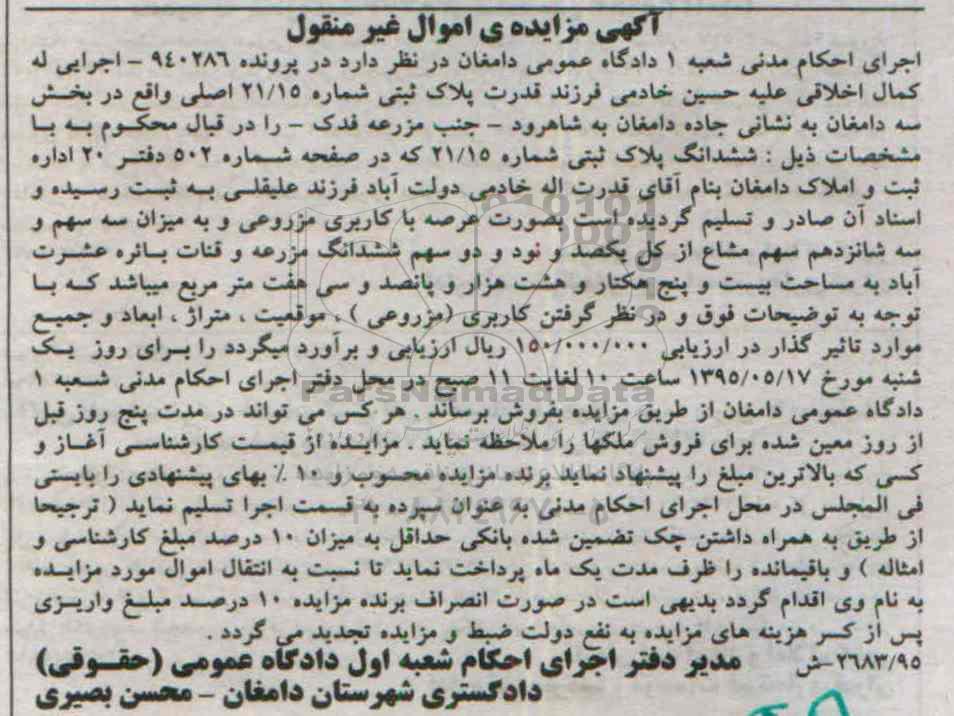 آگهی مزایده ی اموال غیر منقول
اجرای احکام مدنی شعبه ۱ دادگاه عمومی دامغان در نظر دارد در پرونده ۹۴۰۲۸۶ - اجرایی له
کمال اخلاقی علیه حسین خادمی فرزند قدرت پلاک ثبتی شماره ۲۱/۱۵ اصلی واقع در بخش
سه دامغان به نشانی جاده دامغان به شاهرود - جنب مزرعه فدک - را در قبال محکوم به با
مشخصات ذیل : ششدانگ پلاک ثبتی شماره ۲۱/۱۵ که در صفحه شماره ۵۰۲ دفتر ۲۰ اداره
ثبت و املاک دامغان بنام آقای قدرت اله خادمی دولت آباد فرزند علیقلی به ثبت رسیده و
اسناد آن صادر و تسلیم گردیده است بصورت عرصه با کاربری مزروعی و به میزان سه سهم و
سه شانزدهم سهم مشاع از کل یکصد و نود و دو سهم ششدانگ مزرعه و قنات بائره عشرت
آباد به مساحت بیست و پنج هکتار و هشت هزار و پانصد و سی هفت متر مربع میباشد که با
توجه به توضیحات فوق و در نظر گرفتن کاربری (مزروعی ) ، موقعیت ، متراژ ، ابعاد و جمیع
موارد تاثیر گذار در ارزیابی ۱۵۰/۰۰۰/۰۰۰ ریال ارزیابی و برآورد میگردد را برای روز یک
شنبه مورخ ۱۳۹۵/۰۵/۱۷ ساعت ۱۰ لغایت ۱۱ صبح در محل دفتر اجرای احکام مدنی شعبه ۱
دادگاه عمومی دامغان از طریق مزایده بفروش برساند . هر کس می تواند در مدت پنج روز قبل
از روز معین شده برای فروش ملکها را ملاحظه نماید . مزایده از قیمت کارشناسی آغاز و
کسی که بالاترین مبلغ را پیشنهاد نماید برنده مزایده محسوب و ۱۰ ٪ بهای پیشنهادی را بایستی
فی المجلس در محل اجرای احکام مدنی به عنوان سپرده به قسمت اجرا تسلیم نماید ( ترجیحا
از طریق به همراه داشتن چک تضمین شده بانکی حداقل به میزان ۱۰ درصد مبلغ کارشناسی و
امثاله ) و باقیمانده را ظرف مدت یک ماه پرداخت نماید تا نسبت به انتقال اموال مورد مزایده
به نام وی اقدام گردد بدیهی است در صورت انصراف برنده مزایده ۱۰ درصد مبلغ واریزی
پس از کسر هزینه های مزایده به نفع دولت ضبط و مزایده تجدید می گردد .
۲۶۸۳/۹۵-ش مدیر دفتر اجرای احکام شعبه اول دادگاه عمومی (حقوقی)
دادگستری شهرستان دامغان - محسن بصیری
ParsNamadData